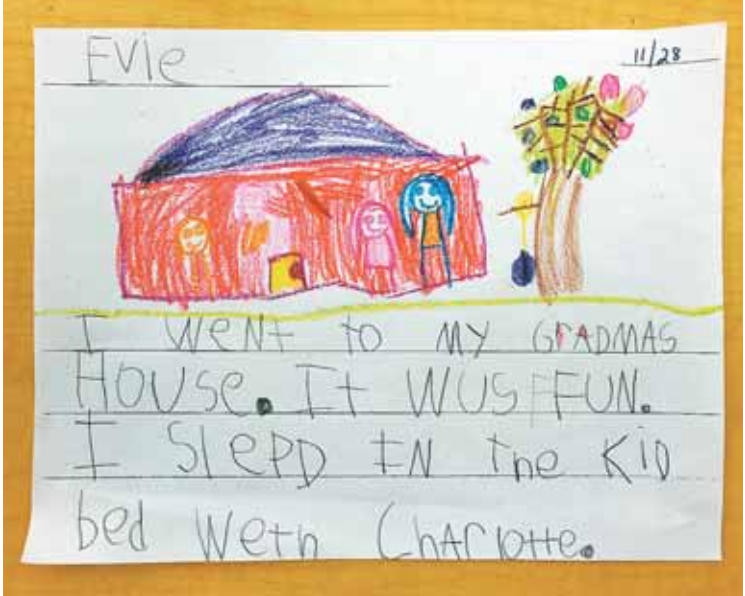 Evie
11/28
I WENt to MY GrADMAS
HOUSe. It WUS FUN.
I SlePD IN the KiD
bed Weth ChArlotte.